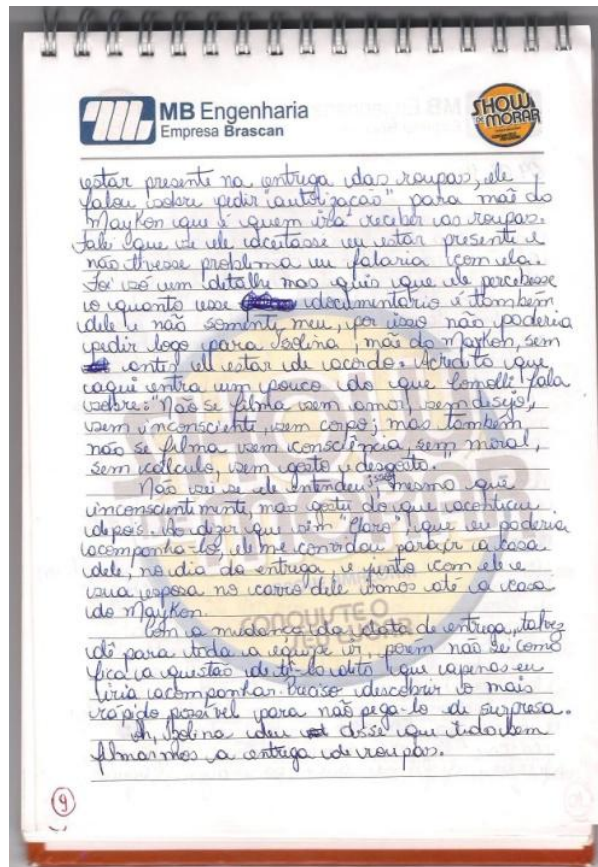 MB Engenharia
Empresa Brascan
SHOW DE MORAR
estar presente na entrega das roupas, ele
falou sobre pedir "autorização" para mãe do
Maykon que é quem irá receber as roupas.
Falei que se ele aceitasse eu estar presente e
não tivesse problema eu falaria com ela.
Foi só um detalhe mas quis que ele percebesse
o quanto esse documentário é também
dele e não somente meu, por isso não poderia
pedir logo para Isolina, mãe do Maykon, sem
antes ele estar de acordo. Acredito que
aqui entra um pouco do que Comolli fala
sobre: "Não se filma sem amor, sem desejo,
sem inconsciente, sem corpo; mas também
não se filma sem consciência, sem moral,
sem cálculo, sem gosto e desgosto."
Não sei se ele entendeu isso, mesmo que
inconscientemente, mas gostei do que aconteceu
depois. Ao dizer que sim "Claro", que eu poderia
acompanhá-los, ele me convidou para ir a casa
dele, no dia da entrega, e junto com ele e
sua esposa no carro dele irmos até a casa
do Maykon.
Com a mudança da data de entrega, talvez
dê para toda a equipe ir, porem não sei como
fica a questão de tê-lo dito que apenas eu
iria acompanhar. Preciso descobrir o mais
rápido possível para não pega-lo de surpresa.
Ah, Isolina deu disse que tudo bem
filmarmos a entrega de roupas.
SHOW
DE MORAR
CONQUISTE O
9